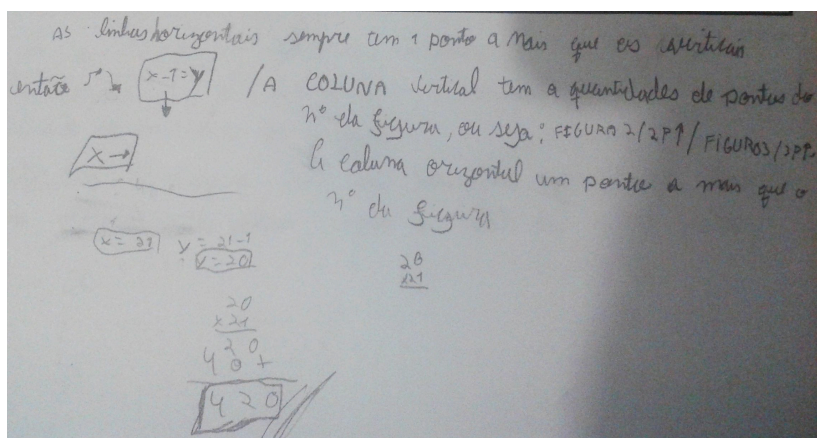 As linhas horizontais sempre tem 1 ponto a mais que as verticais
então x-1=y / A COLUNA vertical tem a quantidades de pontos do
nº da figura, ou seja: FIGURA 2/2P↑/ FIGURA3/3P↑.
x→
A coluna orizontal um ponto a mais que o
nº da figura
x=21 y=21-1
y=20
20
x21
20
21
20
40+
420